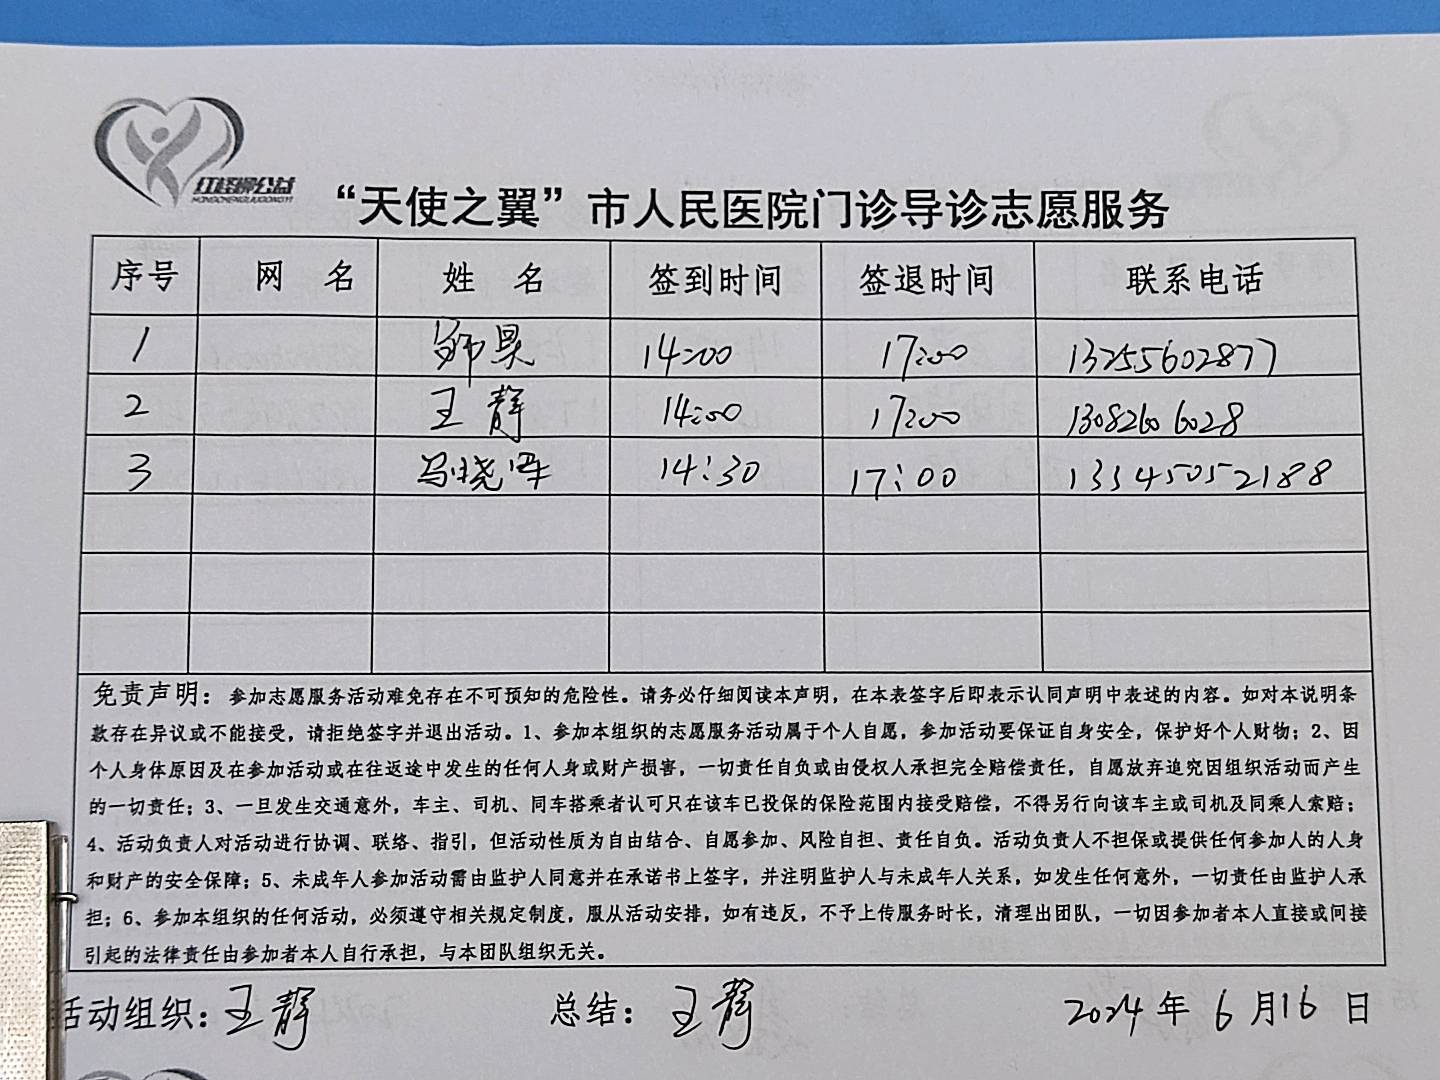 红柽柳公益
HONGCHENGLIUGONGYI
“天使之翼”市人民医院门诊导诊志愿服务
序号 网 名 姓 名 签到时间 签退时间 联系电话
1 14:00 17:00 13255602877
2 王静 14:00 17:00 13082606028
3 马晓军 14:30 17:00 13345052188
免责声明：参加志愿服务活动难免存在不可预知的危险性。请务必仔细阅读本声明，在本表签字后即表示认同声明中表述的内容。如对本说明条
款存在异议或不能接受，请拒绝签字并退出活动。1、参加本组织的志愿服务活动属于个人自愿，参加活动要保证自身安全，保护好个人财物；2、因
个人身体原因及在参加活动或在往返途中发生的任何人身或财产损害，一切责任自负或由侵权人承担完全赔偿责任，自愿放弃追究因组织活动而产生
的一切责任；3、一旦发生交通意外，车主、司机、同车搭乘者认可只在该车已投保的保险范围内接受赔偿，不得另行向该车主或司机及同乘人索赔；
4、活动负责人对活动进行协调、联络、指引，但活动性质为自由结合、自愿参加、风险自担、责任自负。活动负责人不担保或提供任何参加人的人身
和财产的安全保障；5、未成年人参加活动需由监护人同意并在承诺书上签字，并注明监护人与未成年人关系，如发生任何意外，一切责任由监护人承
担；6、参加本组织的任何活动，必须遵守相关规定制度，服从活动安排，如有违反，不予上传服务时长，清理出团队，一切因参加者本人直接或间接
引起的法律责任由参加者本人自行承担，与本团队组织无关。
活动组织：王静 总结：王静 2024年6月16日